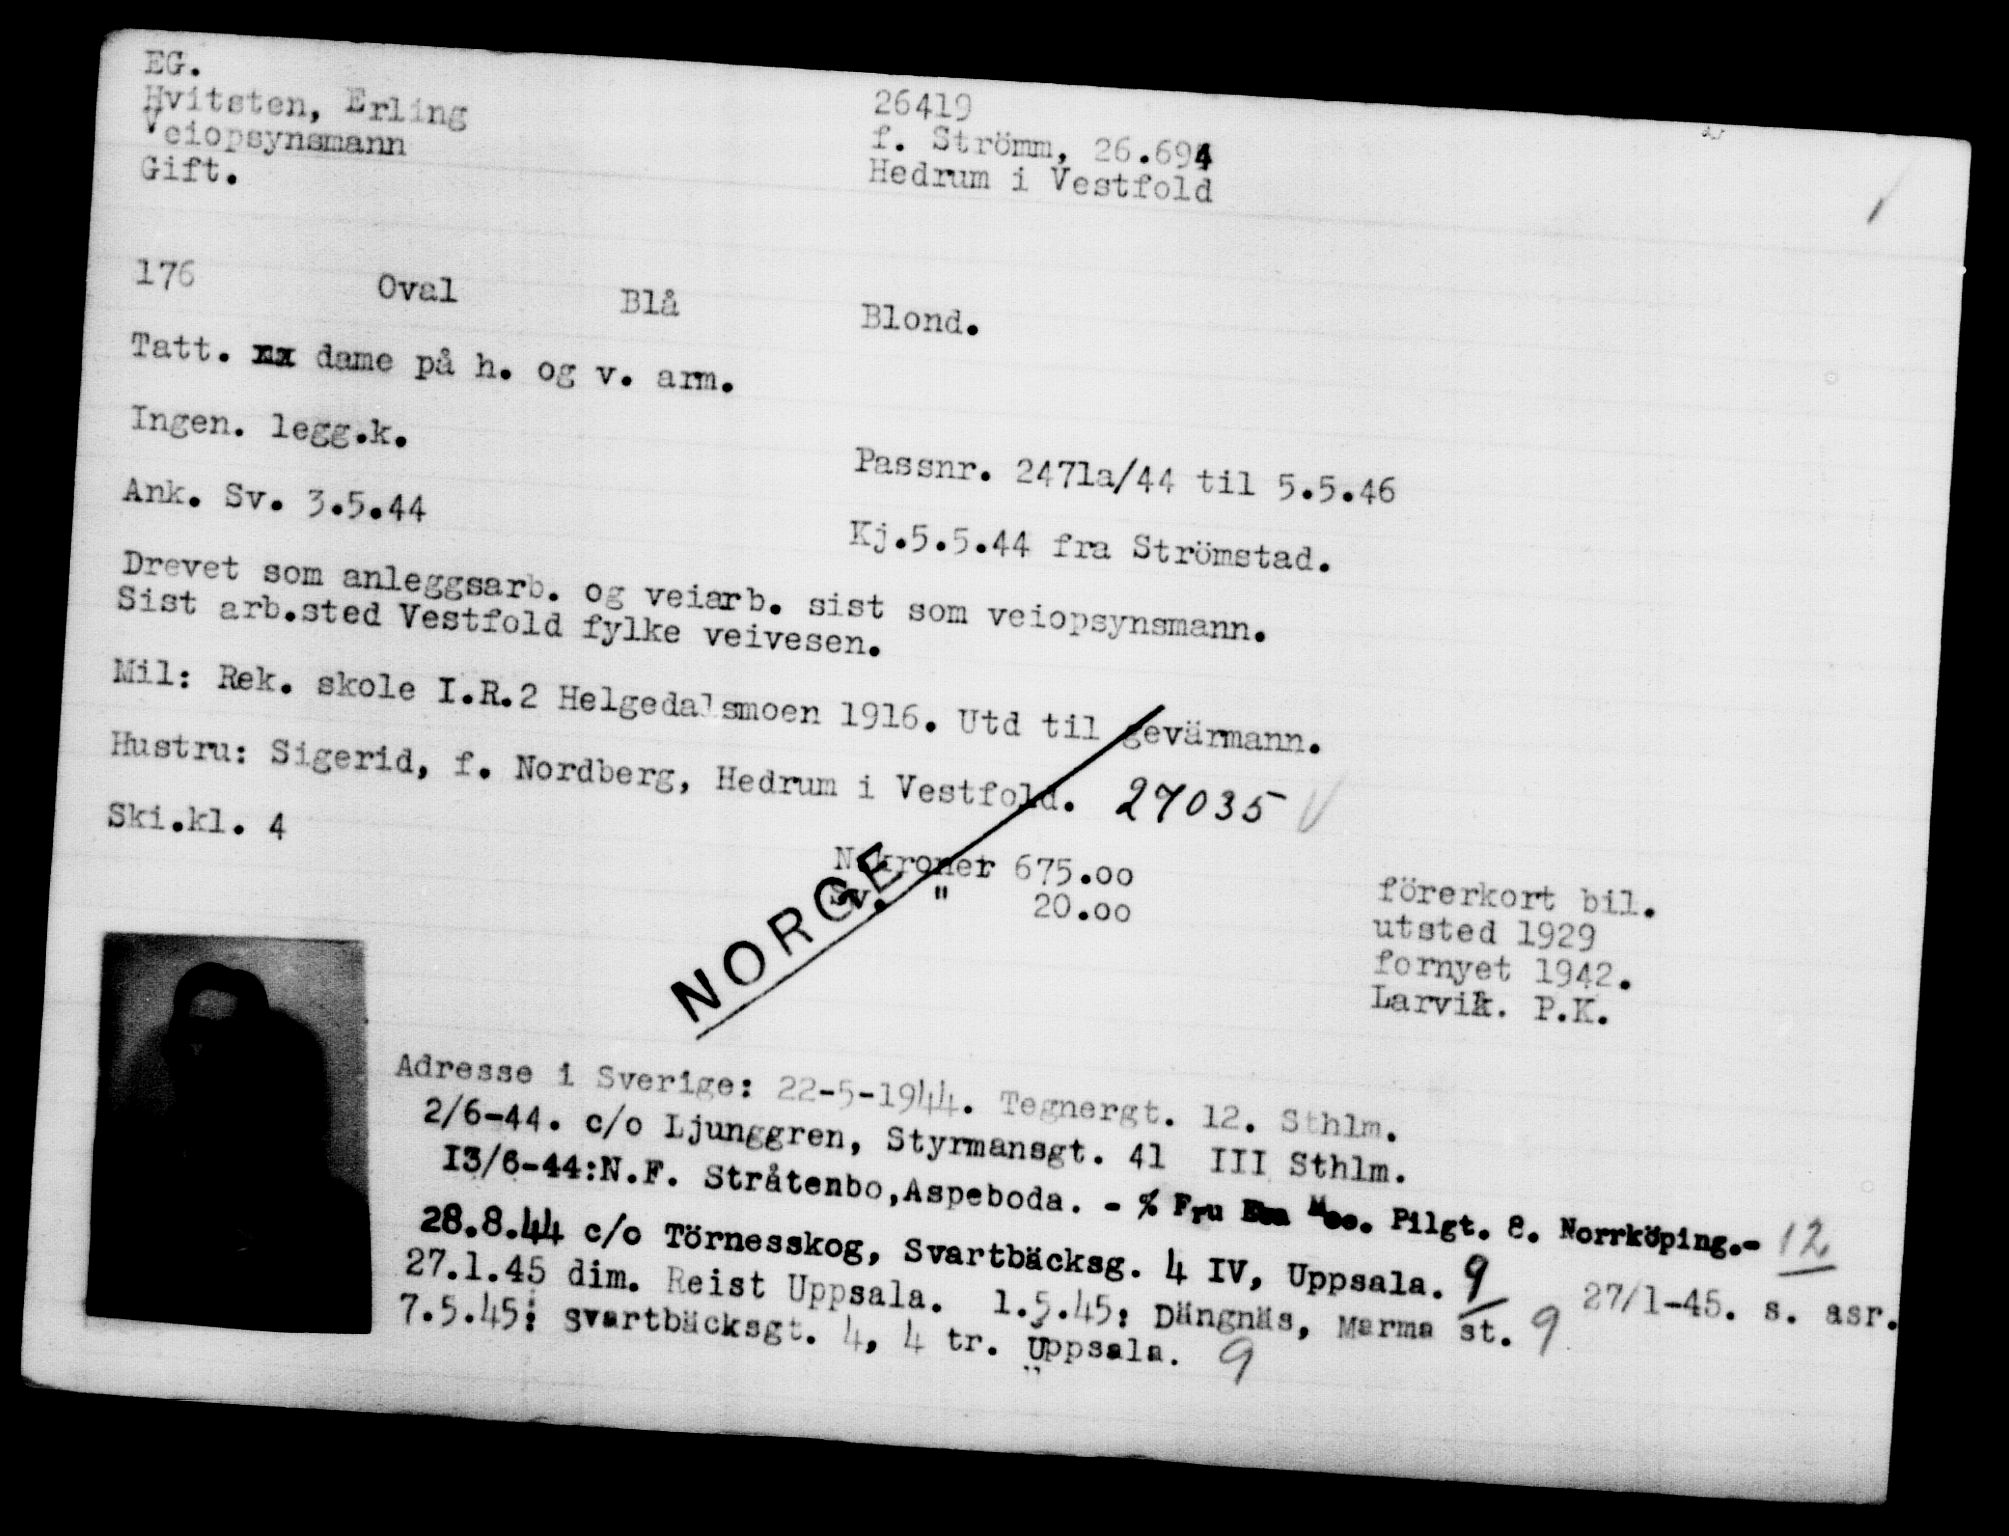 EG.
Hvitsten, Erling
Veiopsynsmann
Gift.
26419
f. Strömm, 26.694
Hedrum i Vestfold
176 Oval Blå Blond.
Tatt. dame på h. og v. arm.
Ingen. legg.k.
Passnr. 2471a/44 til 5.5.46
Ank. Sv. 3.5.44
Kj.5.5.44 fra Strömstad.
Drevet som anleggsarb. og veiarb. sist som veiopsynsmann.
Sist arb.sted Vestfold fylke veivesen.
Mil: Rek. skole I.R.2 Helgedalsmoen 1916. Utd til gevärmann.
Hustru: Sigerid, f. Nordberg, Hedrum i Vestfold. 27035
Ski.kl. 4
N.kroner 675.00
Sv. " 20.00
NORGE
förerkort bil.
utsted 1929
fornyet 1942.
Larvik. P.K.
Adresse i Sverige: 22-5-1944. Tegnergt. 12. Sthlm.
2/6-44. c/o Ljunggren, Styrmansgt. 41 III Sthlm.
13/6-44:N.F. Stråtenbo,Aspeboda. - % Fru Moe. Pilgt. 8. Norrköping.- 12
28.8.44 c/o Törnesskog, Svartbäcksg. 4 IV, Uppsala. 9
27/1-45. s. asr.
27.1.45 dim. Reist Uppsala. 1.5.45: Dängnäs, Marma st. 9
7.5.45: Svartbäcksgt. 4, 4 tr. Uppsala. 9